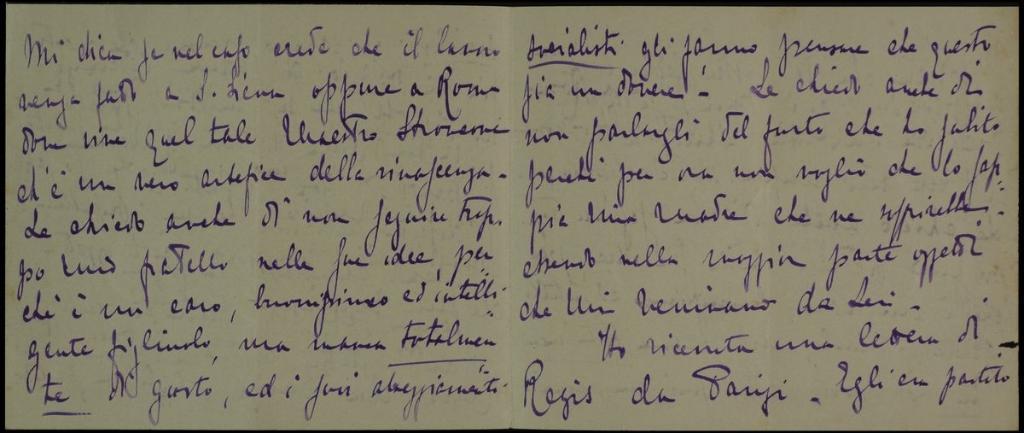 Mi dica se nel caso crede che il lavoro
venga fatto a oppure a Roma
dove vive quel tale Maestro
ch'è un vero artefice della rinascenza -
Le chiedo anche di non seguire trop-
po mio fratello nelle sue idee, per
chè è un caro, buonissimo ed intelli
gente figliuolo, ma manca totalmen
te di gusto, ed i suoi atteggiamenti
socialisti gli fanno pensare che questo
sia un dovere - Le chiedo anche di
non parlargli del furto che ho subito
perchè per ora non voglio che lo sap-
pia mia Madre che ne soffrirebbe -
essendo nella maggior parte oggetti
che mi venivano da Lei -
Ho ricevuta una lettera di
Regis da Parigi - Egli era partito